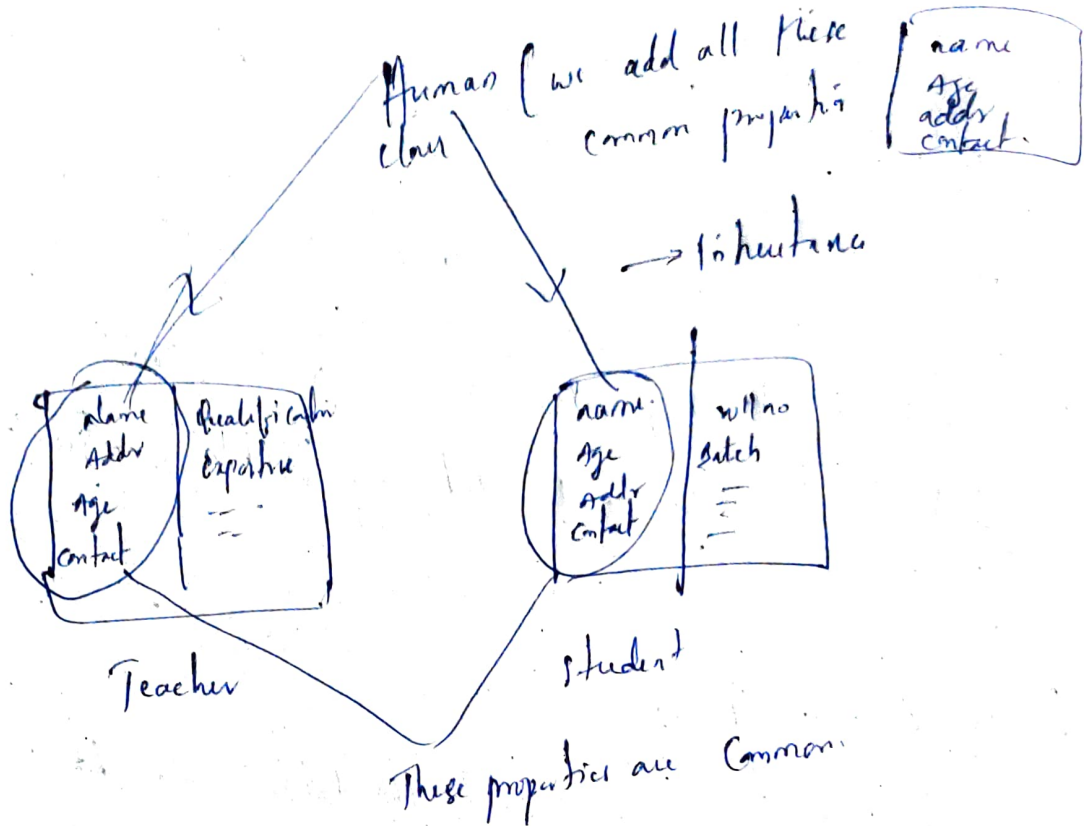 Human (we add all these
class common properties
name
Age
addr
contact.
→ Inheritance
Name
Addr
Age
contact
Qualification
Expertise
name.
Age
Addr
contact
roll no
Batch
Teacher
student
These properties are Common.